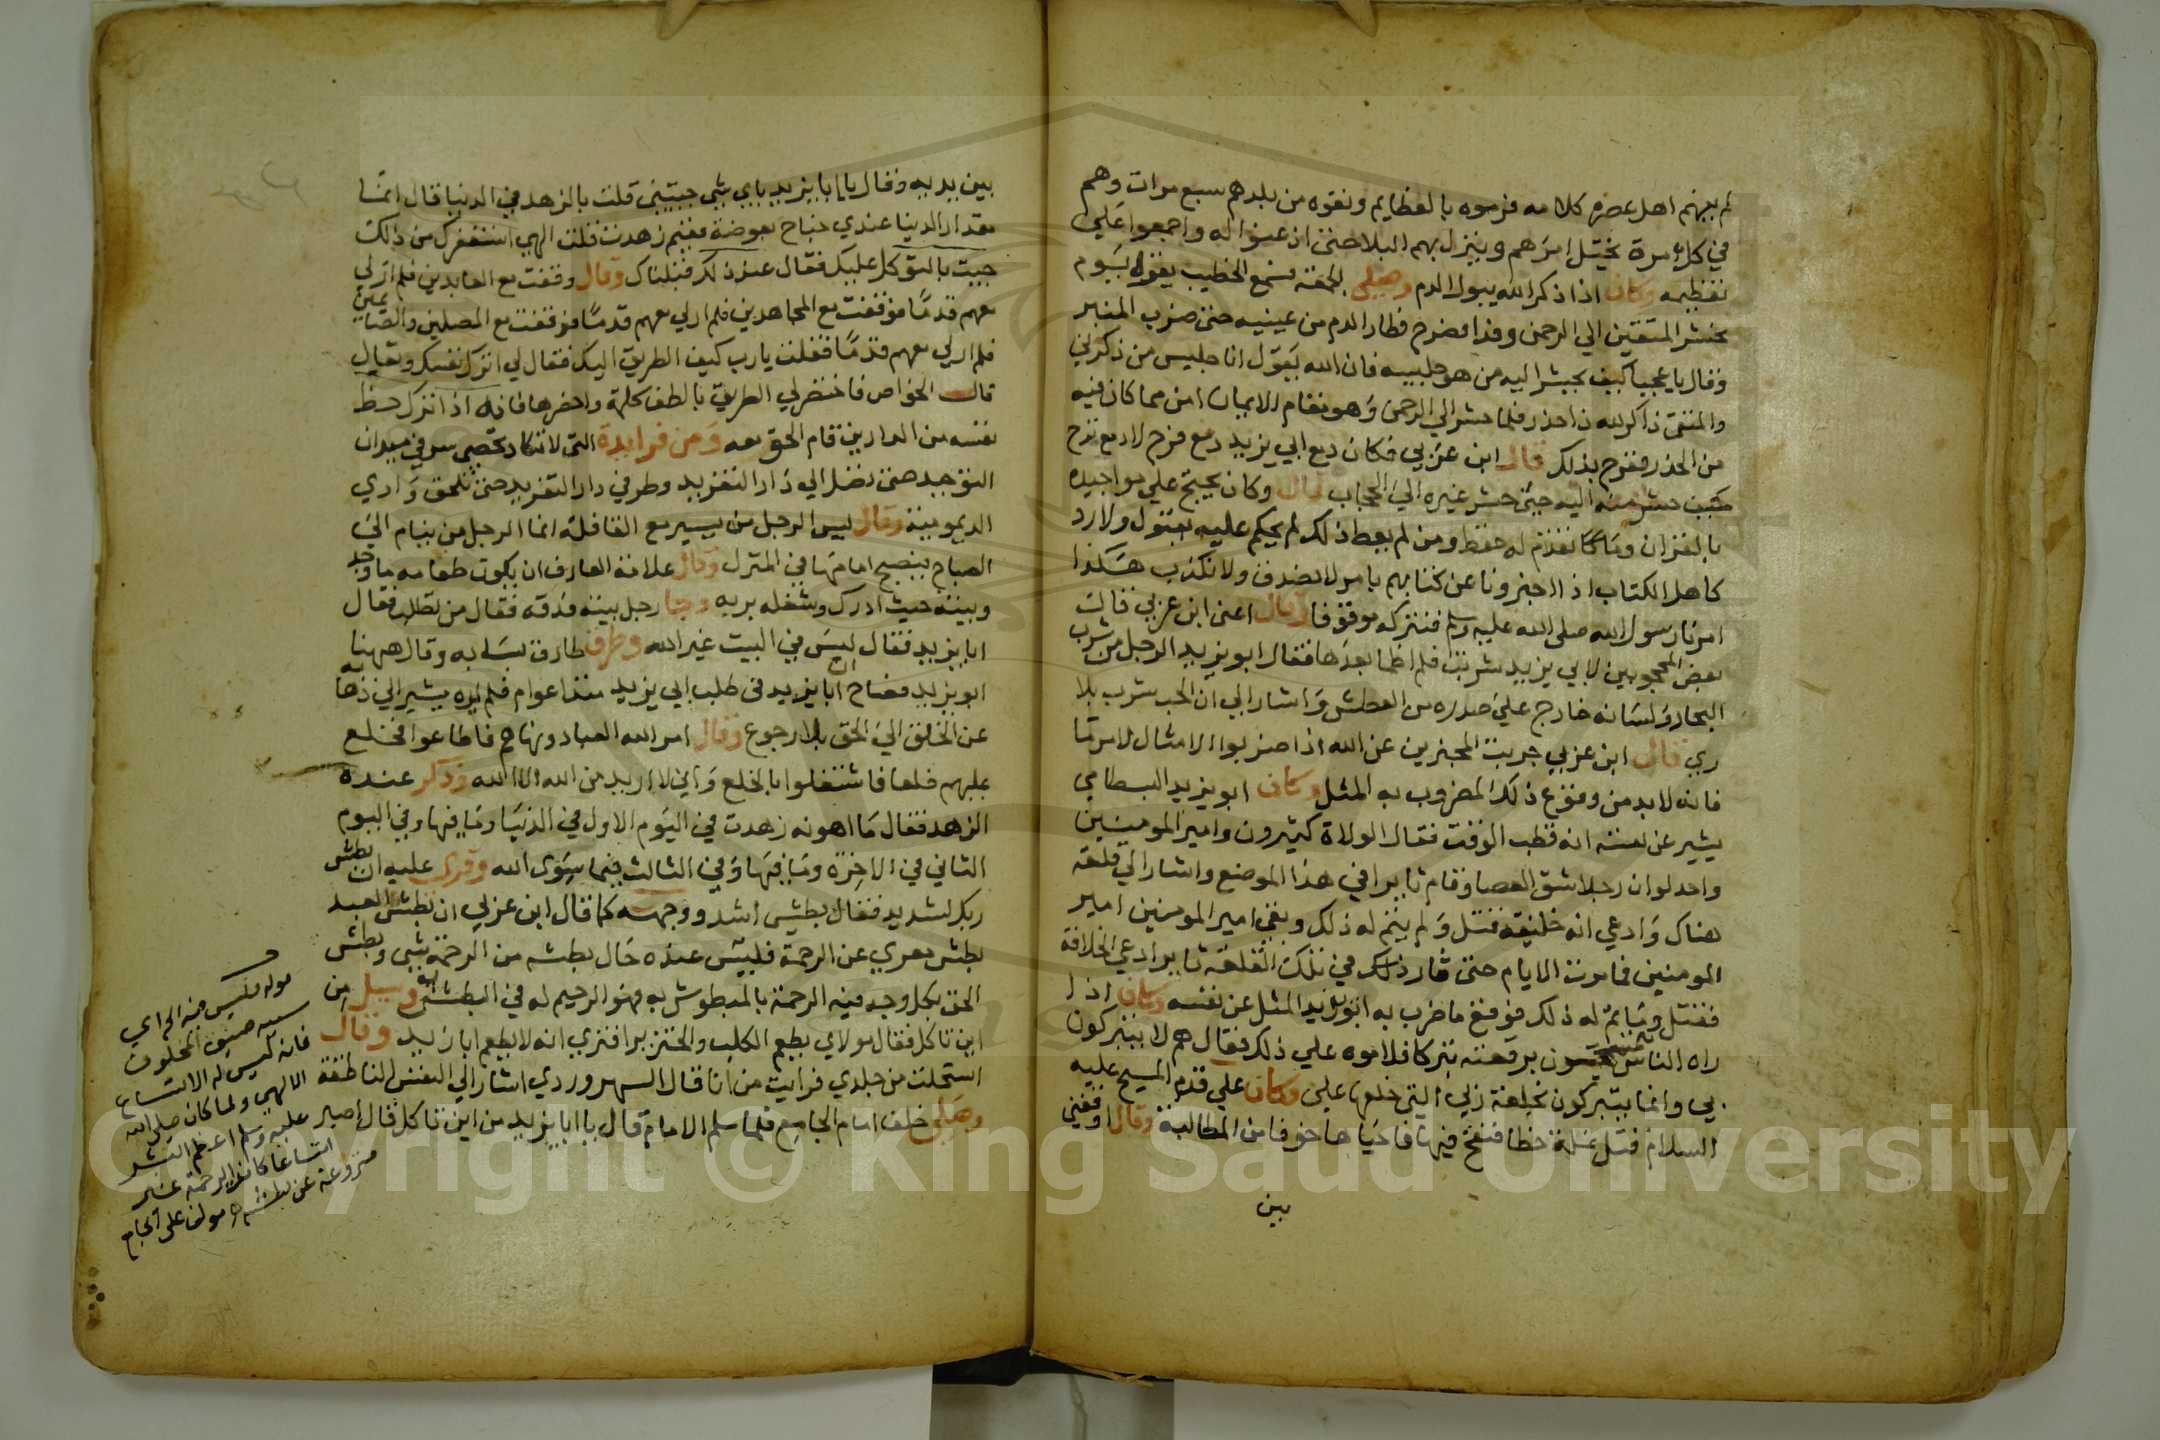 لم يفهم اهل عصره كلامه فرموه بالعظايم ونفوه من بلدهم سبع مرات وهم
في كل مرة يختل امرهم وينزل بهم البلا حتى اذعنوا له واجمعوا علي
تعظيمه وكان اذا ذكر الله يبول الدم وصلي الجمعة فسمع الخطيب يقول يوم
نحشر المتقين الي الرحمن وفدا فصرخ فطار الدم من عينيه حتى ضرب المنبر
وقال يا عجبا كيف يحشر اليه من هو جليسه فان الله يقول انا جليس من ذكرني
والمتقي ذاكر لله ذا حذر فلما حشر الي الرحمن وهو مقام الامان امن مما كان فيه
من الحذر ففرح بذلك قال ابن عربي فكان دمع ابي يزيد دمع فرح لا دمع ترح
كيف حشر منه اليه حين حشر غيره الي الحجاب قال وكان يحتج علي مواجيده
بالقران ولم يعط ذلك لم يحكم عليه بقبول ولا رد
كاهل الكتاب اذا اخبرونا عن كتابهم بامر لا نصدق ولا نكذب هكذا
امرنا رسول الله صلى الله عليه وسلم فنتركه موقوفا قال اعني ابن عربي قالت
بعض المحجوبين لابي يزيد شربت فلم اظما بعدها فقال ابو يزيد الرجل من شرب
البحار ولسانه خارج علي صدره من العطش واشار الي ان الحب شرب بلا
ري قال ابن عربي جربت المخبرين عن الله اذا ضربوا الامثال لامر ما
فانه لا بد من وقوع ذلك المضروب به المثل وكان ابو يزيد البسطامي
يشير عن نفسه انه قطب الوقت فقال الولاة كثيرون وامير المومنين
واحد لو ان رجلا شق العصا وقام ثايرا في هذا الموضع واشار الي قلعة
هناك وادعي انه خليفة قتل ولم يتم له ذلك وبقي امير المومنين امير
المومنين فما مرت الايام حتى ثار في تلك القلعة ثاير ادعي الخلافة
فقتل وما تم له ذلك فوقع ما ضرب به ابو يزيد المثل عن نفسه وكان اذا
راه الناس يتمسحون بمرقعته تبركا فلاموه علي ذلك فقال هم لا يتبركون
بي وانما يتبركون بخلعة ربي التي خلعها علي وكان علي قدم المسيح عليه
السلام قتل نملة خطا فنفخ فيها فاحياها خوفا من المطالبة وقال اوقفني
بين
بين يديه وقال يا ابا يزيد باي شي جيتني قلت بالزهد في الدنيا قال انما
مقدار الدنيا عندي جناح بعوضة ففيم زهدت قلت الهي استغفرك من ذلك
جيت بالتوكل عليك فقال عند ذلك قبلناك وقال وقفت مع العابدين فلم ار لي
معهم قدما فوقفت مع المجاهدين فلم ار لي معهم قدما فوقفت مع المصلين والصايمين
فلم ار لي معهم قدما فقلت يا رب كيف الطريق اليك فقال لي اترك نفسك وتعال
قال الخواص فاختصر لي الطريق بالطف كلمة واخصرها فانه اذا ترك حظ
نفسه من الدارين قام الحق معه ومن فرايده التي لا تكاد تحصى سر في ميدان
التوحيد حتى تصل الي دار التفريد وطر في دار التفريد حتى تلحق وادي
الديمومية وقال ليس الرجل من يسير مع القافلة انما الرجل من ينام الي
الصباح فيصبح امامها في المنزل وقال علامة العارف ان يكون طعامه ما وجد
وبيته حيث ادرك وشغله بربه وجا رجل بيته فدقه فقال من تطلب فقال
ابا يزيد فقال ليس في البيت غير الله وطرق طارق بابه وقال ههنا
ابو يزيد فصاح ان ابا يزيد في طلب ابي يزيد منذ اعوام فلم يره يشير الي ذهابه
عن الخلق الي الحق بلا رجوع وقال امر الله العباد ونهاهم فاطاعوا فخلع
عليهم خلعا فاشتغلوا بالخلع واني لا اريد من الله الا الله وذكر عنده
الزهد فقال ما اهونه زهدت في اليوم الاول في الدنيا وما فيها وفي اليوم
الثاني في الاخرة وما فيها وفي الثالث فيما سوى الله وقري عليه ان بطش
ربك لشديد فقال بطشي اشد ووجهه كما قال ابن عربي ان بطش العبد
بطش معري عن الرحمة فليس عنده حال بطشه من الرحمة شي وبطش
الحق بكل وجه فيه الرحمة بالمبطوش به فهو الرحيم له في البطش وسيل من
اين تاكل فقال مولاي يطعم الكلب والخنزير افتري انه لا يطعم ابا يزيد وقال
انسلخت من جلدي فرايت من انا قال السهروردي اشار الي النفس الناطقة
وصلي خلف امام الجامع فلما سلم الامام قال يا ابا يزيد من اين تاكل قال اصبر
فانه ليس له الاتساع
الالهي ولما كان صلى الله
عليه وسلم اعظم البشر
اتساعا كانت الرحمة غير
منزوعة عن بطشه